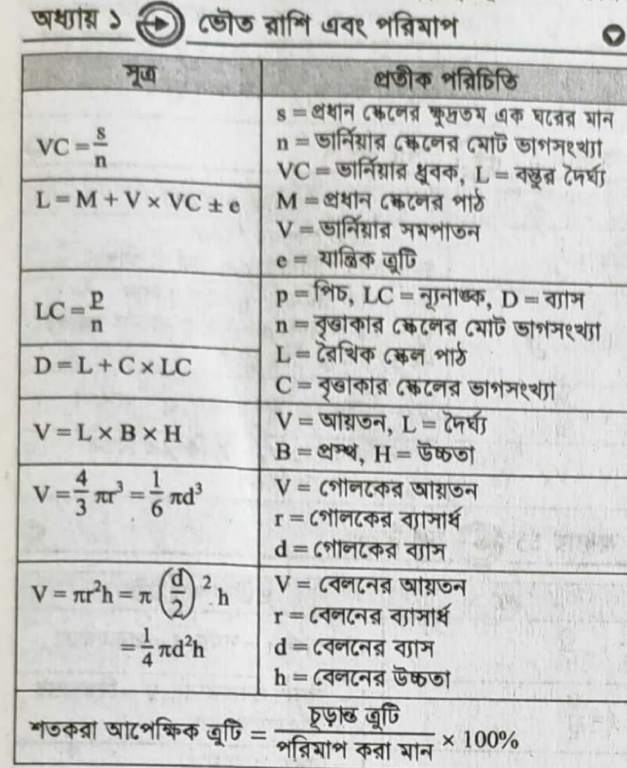 অধ্যায় ১ ভৌত রাশি এবং পরিমাপ
সূত্র প্রতীক পরিচিতি
VC = s/n
s = প্রধান স্কেলের ক্ষুদ্রতম এক ঘরের মান
n = ভার্নিয়ার স্কেলের মোট ভাগসংখ্যা
VC = ভার্নিয়ার ধ্রুবক, L = বস্তুর দৈর্ঘ্য
L = M + V × VC ± e
M = প্রধান স্কেলের পাঠ
V = ভার্নিয়ার সমপাতন
e = যান্ত্রিক ত্রুটি
LC = p/n
p = পিচ, LC = ন্যূনাঙ্ক, D = ব্যাস
n = বৃত্তাকার স্কেলের মোট ভাগসংখ্যা
D = L + C × LC
L = রৈখিক স্কেল পাঠ
C = বৃত্তাকার স্কেলের ভাগসংখ্যা
V = L × B × H
V = আয়তন, L = দৈর্ঘ্য
B = প্রস্থ, H = উচ্চতা
V = 4/3 πr³ = 1/6 πd³
V = গোলকের আয়তন
r = গোলকের ব্যাসার্ধ
d = গোলকের ব্যাস
V = πr²h = π (d/2)² h
= 1/4 πd²h
V = বেলনের আয়তন
r = বেলনের ব্যাসার্ধ
d = বেলনের ব্যাস
h = বেলনের উচ্চতা
শতকরা আপেক্ষিক ত্রুটি = চূড়ান্ত ত্রুটি / পরিমাপ করা মান × 100%